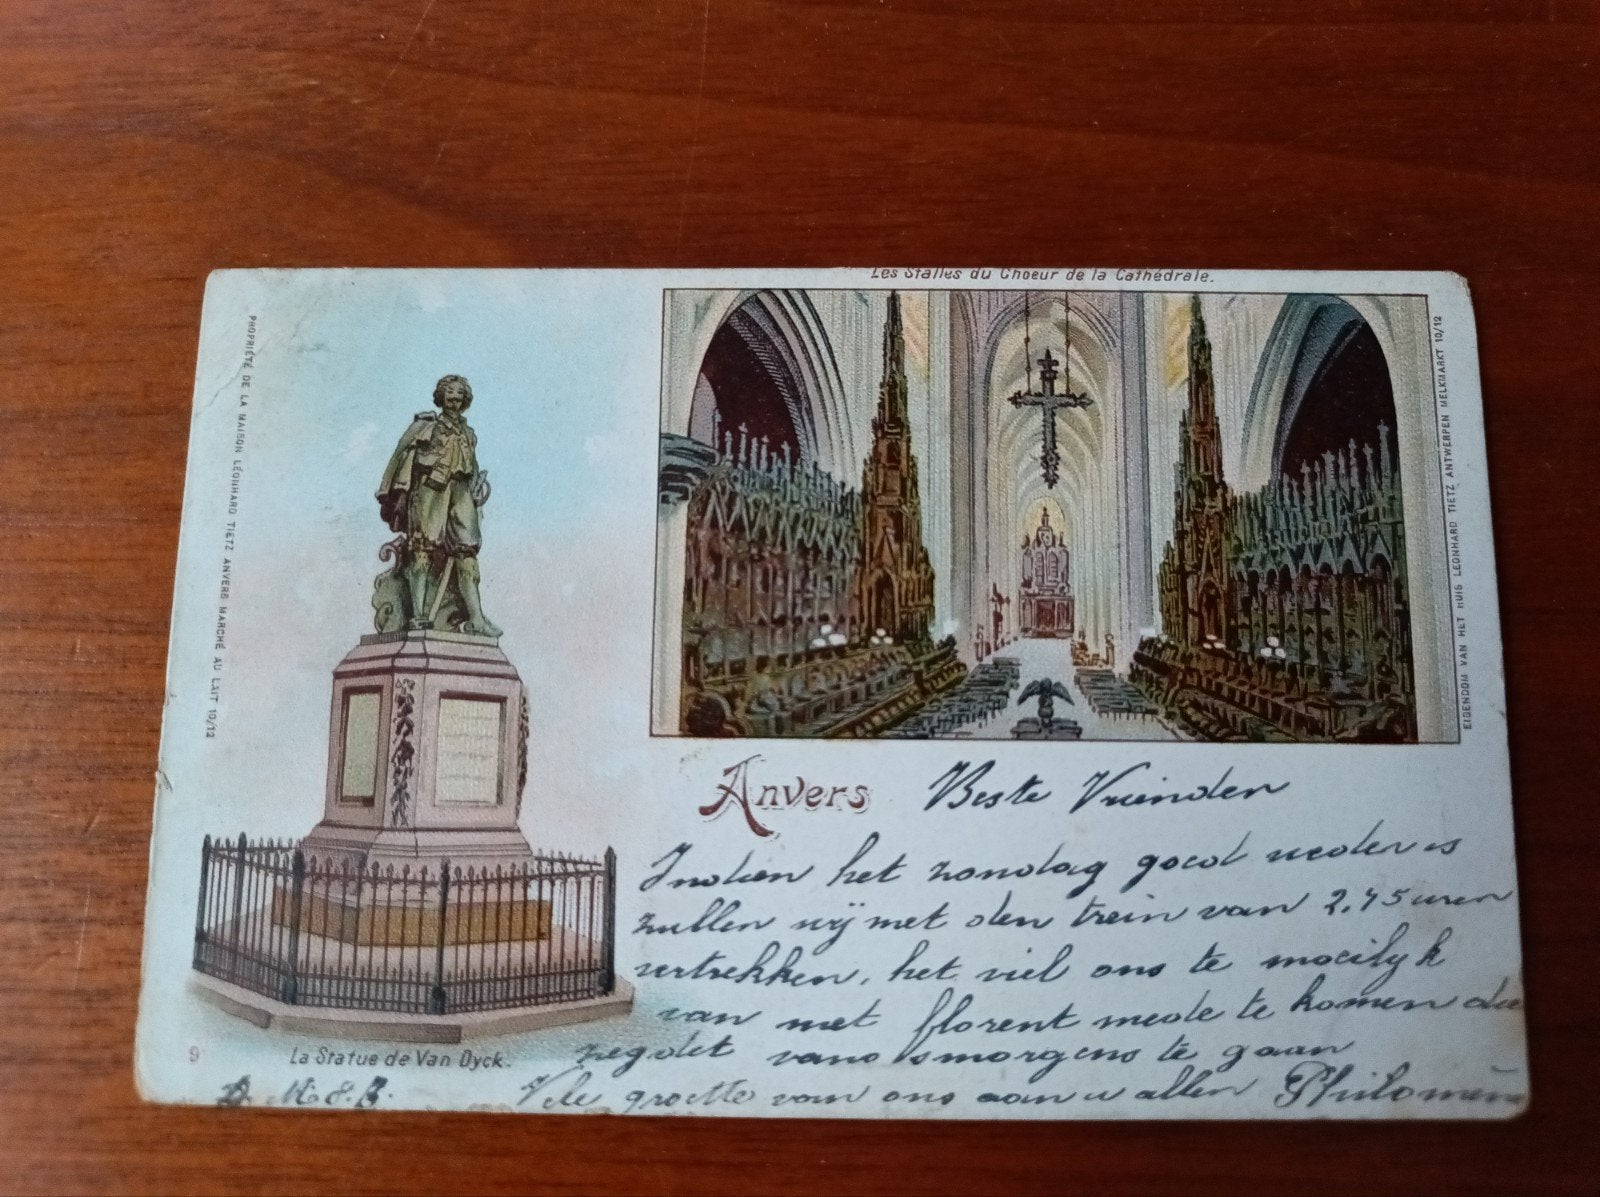 Les Stalles du Choeur de la Cathédrale.
PROPRIÉTÉ DE LA MAISON LÉONHARD TIETZ ANVERS MARCHÉ AU LAIT 10/12
EIGENDOM VAN HET HUIS LEONHARD TIETZ ANTWERPEN MELKMARKT 10/12
Anvers
Beste Vrienden
Indien het zondag goed weder is
zullen wij met den trein van 2,45 uren
vertrekken, het viel ons te moeilijk
van met florent mede te komen die
zegdet vans smorgens te gaan
Vele groette van ons aan u allen Philomène
9
La Statue de Van Dyck.